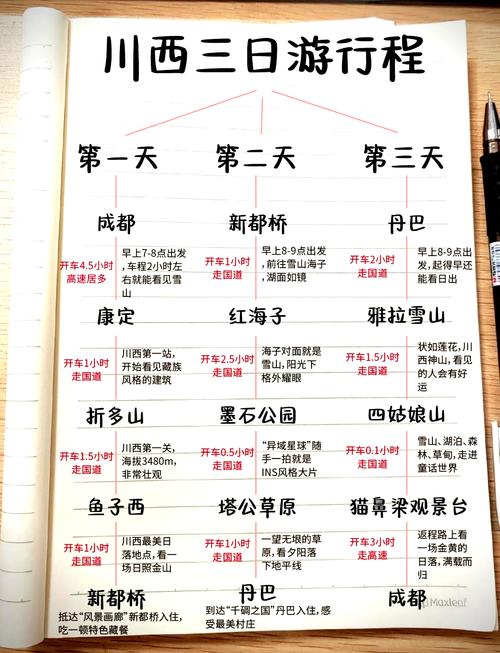 川西三日游行程
第一天
成都
开车4.5小时
高速居多
早上7-8点出发
,车程2小时左
右就能看见雪
山
康定
开车1小时
走国道
川西第一站,
开始看见藏族
风格的建筑
折多山
开车1.5小时
走国道
川西第一关,
海拔3480m,
非常壮观
鱼子西
开车1小时
走国道
川西最美日
落地点,看一
场日照金山
新都桥
抵达“风景画廊”新都桥入住,
吃一顿特色藏餐
第二天
新都桥
开车1小时
走国道
早上8-9点出发
,前往雪山海子
,湖面如镜
红海子
开车2.5小时
走国道
海子对面就是
雪山,阳光下
格外耀眼
墨石公园
开车0.5小时
走国道
“异域星球”随
手一拍就是
INS风格大片
塔公草原
开车1小时
走国道
一望无垠的草
原,看夕阳落
下地平线
丹巴
到达“千碉之国”丹巴入住,感
受最美村庄
第三天
丹巴
开车2小时
走国道
早上8-9点出
发,起得早还
能看日出
雅拉雪山
开车1.5小时
走国道
状如莲花,川
西神山,看见
的人会有好
运
四姑娘山
开车0.1小时
走国道
雪山、湖泊、森
林、草甸,走进
童话世界
猫鼻梁观景台
开车3小时
走高速
返程路上看
一场金黄的
日落,满载而
归
成都
Maxleaf